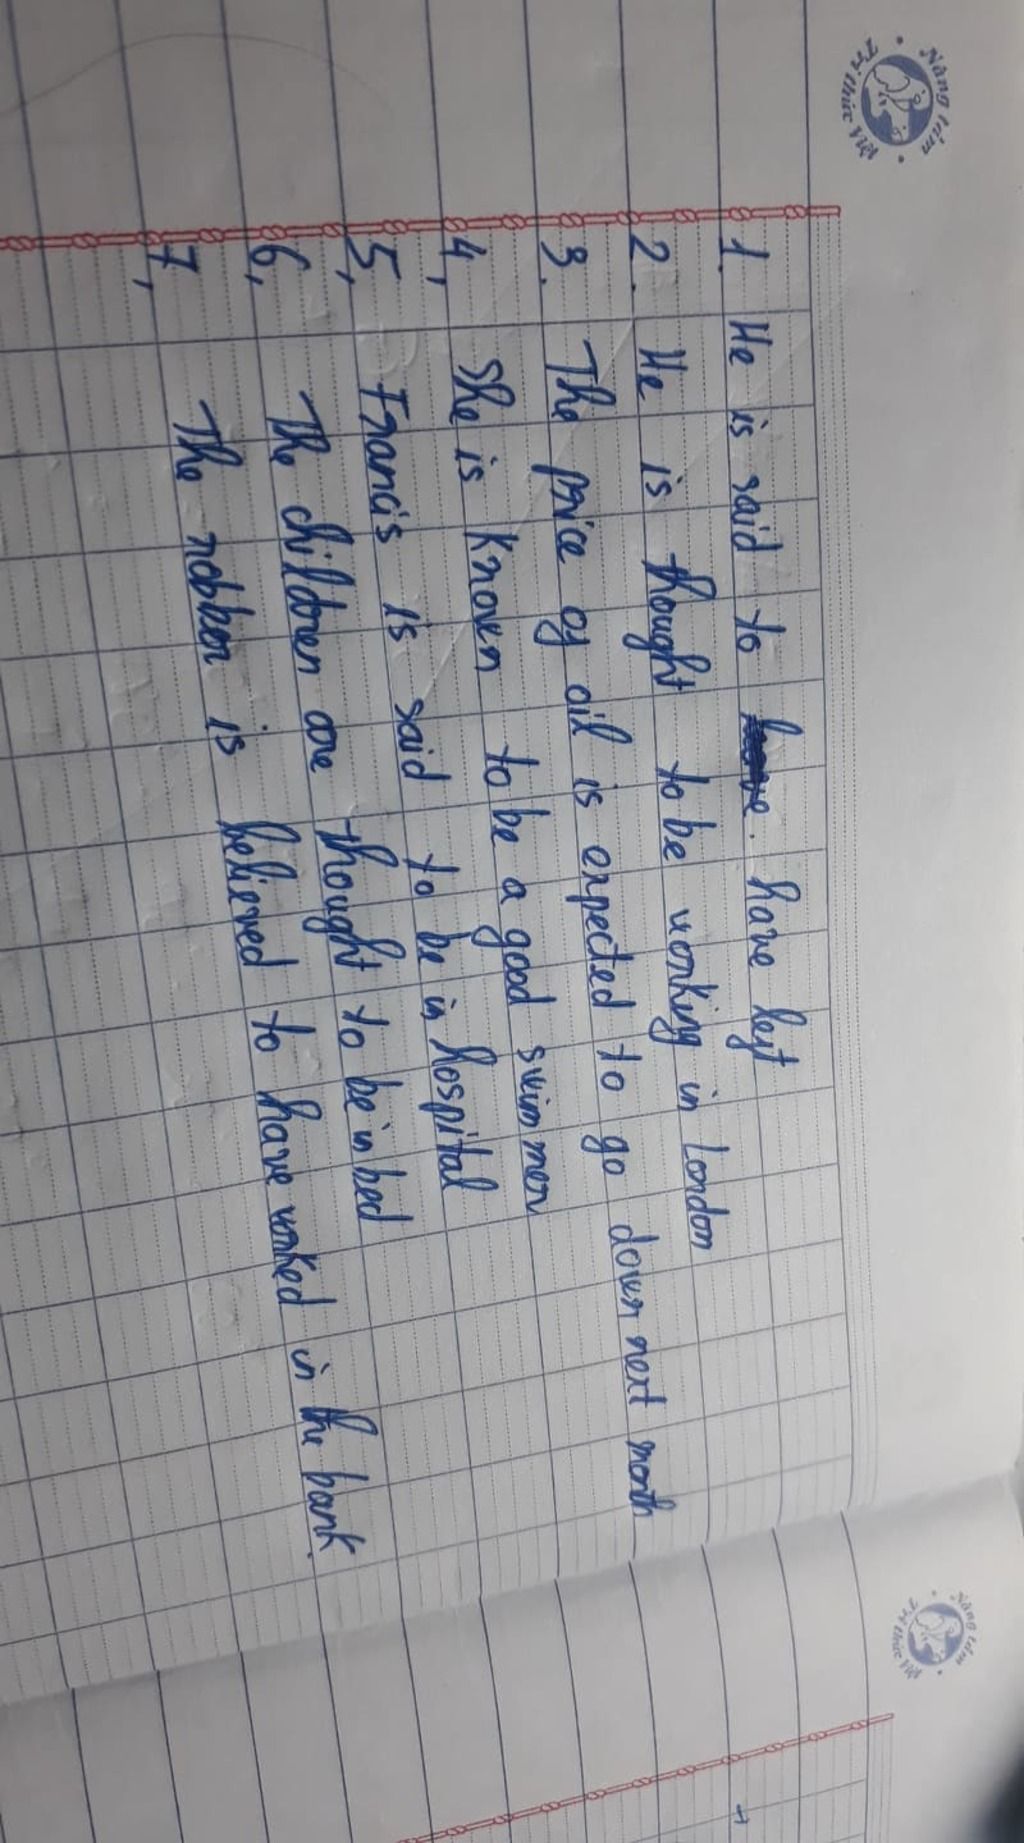 Nâng tầm
Tri thức Việt
1. He is said to have left
2. He is thought to be working in London
3. The price of oil is expected to go down next month
4, She is known to be a good swimmer
5, Francis is said to be in hospital
6, The children are thought to be in bed
7, The robber is believed to have worked in the bank.
Nâng tầm
Tri thức Việt